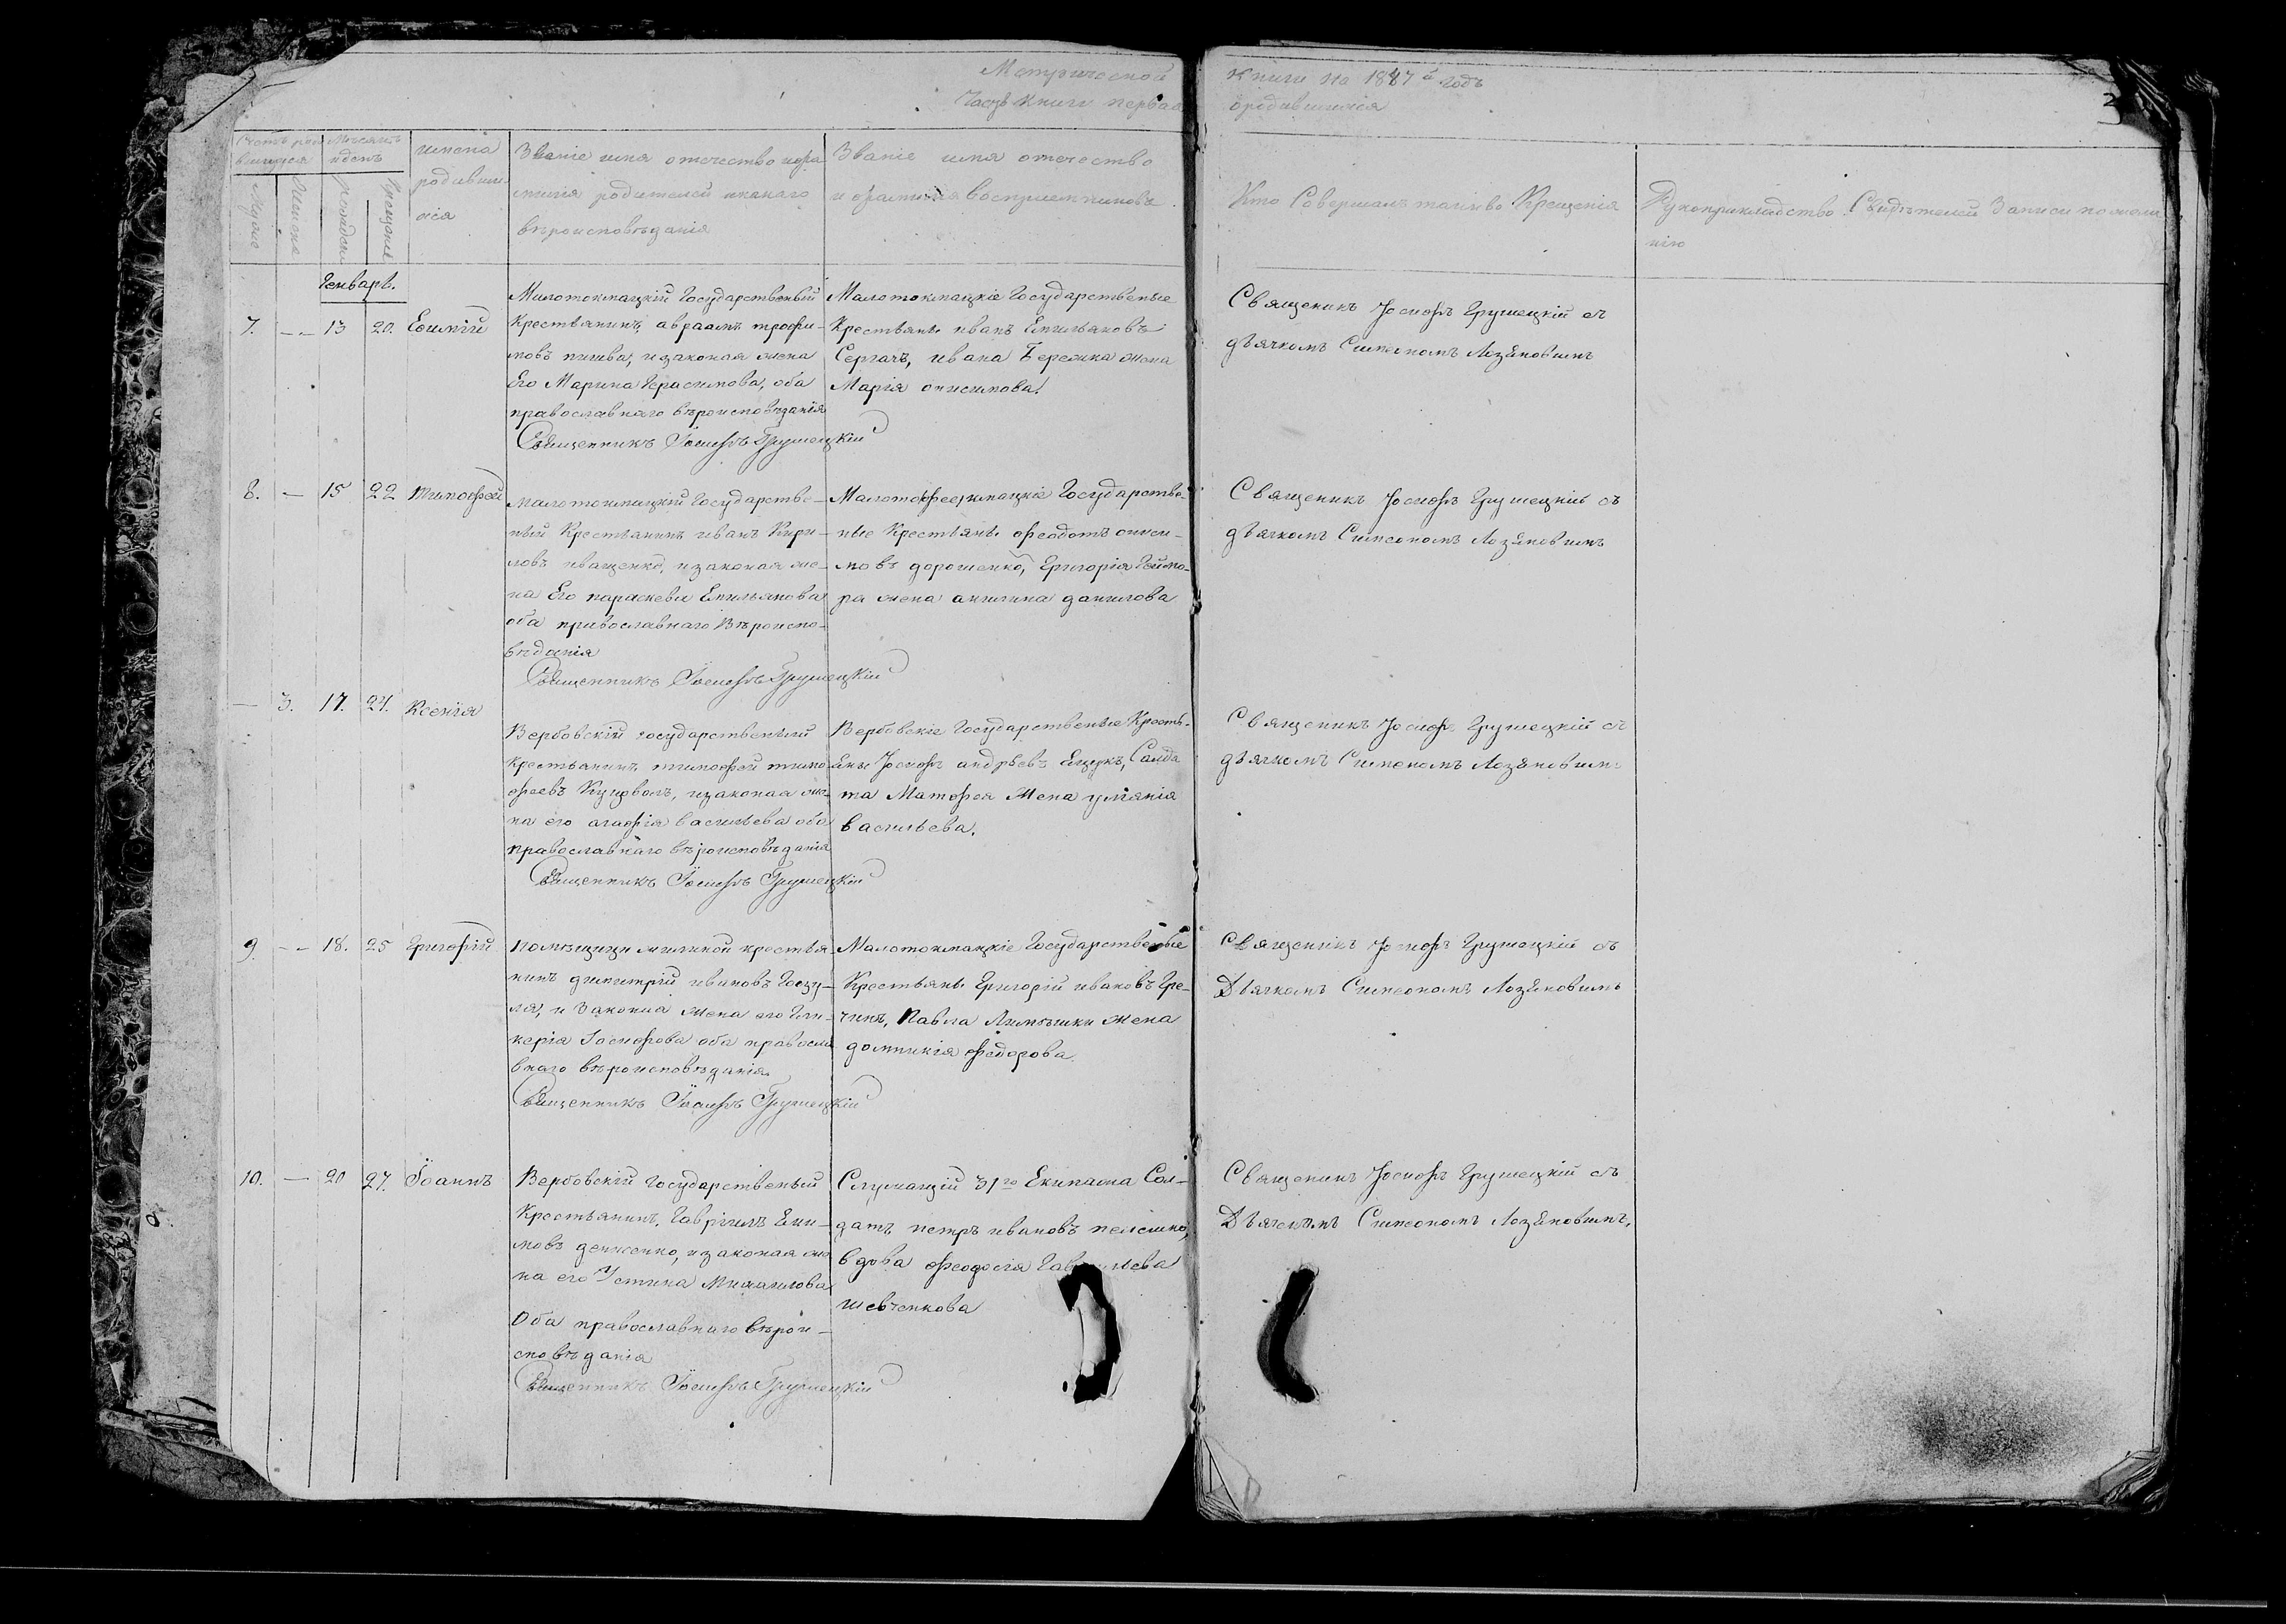 Метрической книги на 1847й годъ
Часть книги первая о родившихся
3
Мужеска
Женска
рожденія
крещенія
имена
родивши
хся
Званіе имя отечество и фа
милія родителей и какаго
вѣроисповѣданія
Званіе имя отечество
и фамилія воспріемниковъ
Кто Совершалъ таинство Крещенія
Рукоприкладство Свидѣтелей Записи по жела
нію
Генварь.
7. — 13 20. Евфимій
Малотокмацкій Государственый
Крестьянинъ авраамъ трофи-
мовъ пшива, и законая жена
Его Марина Герасимова, оба
православнаго вѣроисповѣданія
Священникъ Іосифъ Грушецкій
Малотокмацкіе Государственые
Крестьяне иванъ Емильяновъ
Сергачъ, ивана Бережка жена
Марія онисимова.
Священикъ Іосифъ Грушецкій съ
дьячкомъ Симеономъ Лозяновимъ
8. — 15 22 тимофей
Малотокмацкій Государстве-
ный Крестьянинъ иванъ Кири-
ловъ иващенко, и законая же-
на Его параскева Емильянова
оба православнаго Вѣроиспо-
вѣданія
Священникъ Іосифъ Грушецкій
Государстве-
ные Крестьяне феодотъ ониси-
мовъ дорошенко, Григорія
ра жена ангилина данилова
Священикъ Іосифъ Грушецкій съ
дьячкомъ Симеономъ Лозяновимъ
— 3. 17. 24. Ксенія
Вербовскій государственый
крестьянинъ тимофей тимо
феевъ, и законая же
на его агафія васильева оба
православнаго вѣроисповѣданія
Священникъ Іосифъ Грушецкій
Вербовскіе Государственые Кресть-
яне Іосифъ андрѣевъ Ещукъ, Салда
та Матфея Жена улияния
васильева.
Священикъ Іосифъ Грушецкій съ
дьячкомъ Симеономъ Лозяновимъ
9. — 18. 25 Григорій
помѣщици крестья
нинъ димитрій ивановъ
ля, и Законая Жена его Гли-
керія Іосифова оба правосла
внаго вѣроисповѣданія
Священникъ Іосифъ Грушецкій
Малотокмацкіе Государственые
Крестьяне Григорій ивановъ Гре-
чинъ, Павла жена
домникія федорова.
Священикъ Іосифъ Грушецкій съ
Дьячкомъ Симеономъ Лозяновимъ
10. — 20 27. Іоаннъ
Вербовскій государственый
Крестьянинъ, Гавріилъ Еки-
мовъ денженко, и законая же
на его Устина Михаилова
Оба православнаго вѣрои-
сповѣданія
Священникъ Іосифъ Грушецкій
Служащій 31го Екипажа Сол-
датъ петръ ивановъ
вдова феодосія
шевченкова
Священикъ Іосифъ Грушецкій съ
Дьячкомъ Симеономъ Лозяновимъ.